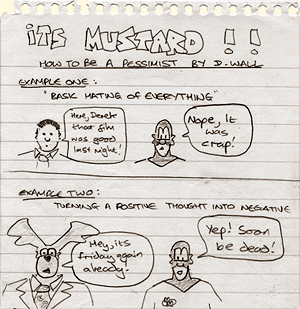 iTS MUSTARD!!
HOW TO BE A PESSIMIST BY D. WALL
EXAMPLE ONE:
"BASIC HATING OF EVERYTHING"
Here, Derek
that film
was good
last night!
Nope, It
was
crap!
EXAMPLE TWO:
TURNING A POSITIVE THOUGHT INTO NEGATIVE
Hey, its
friday again
already.
Yep! Soon
be dead!